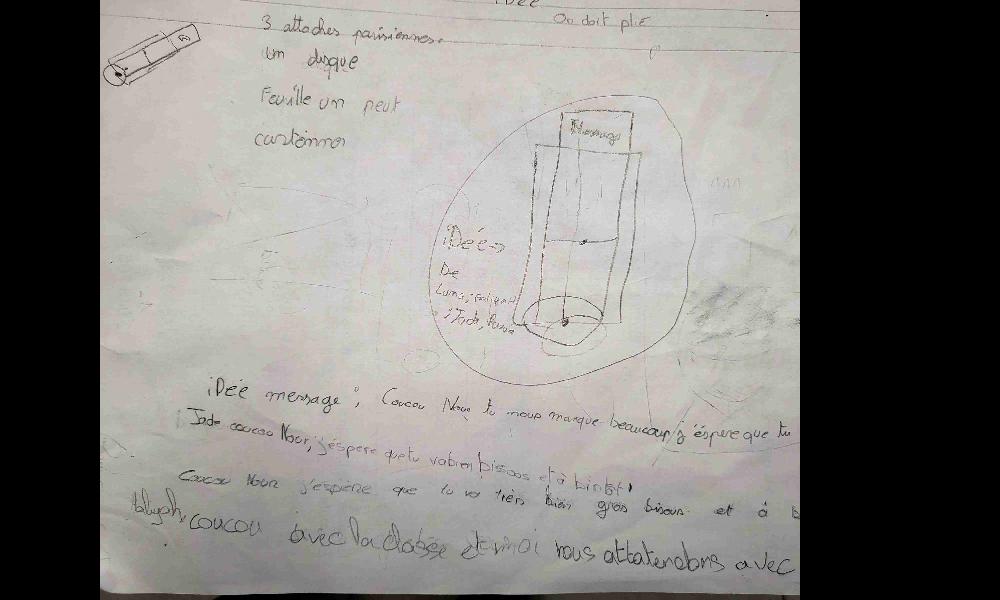 On doit plié
3 attaches parisiennes.
un disque
Feuille un peut
cartonner
Message
iDée →
De
iDée message ; Coucou Nour tu nous manque beaucoup j'éspere que tu
Jade coucou Nour, j'éspere que tu va bien bisous et à bintôt !
Coucou Nour j'espère que tu va très bien gros bisous et à b
Aaliyah, coucou avec la classe et moi nous attatendons avec